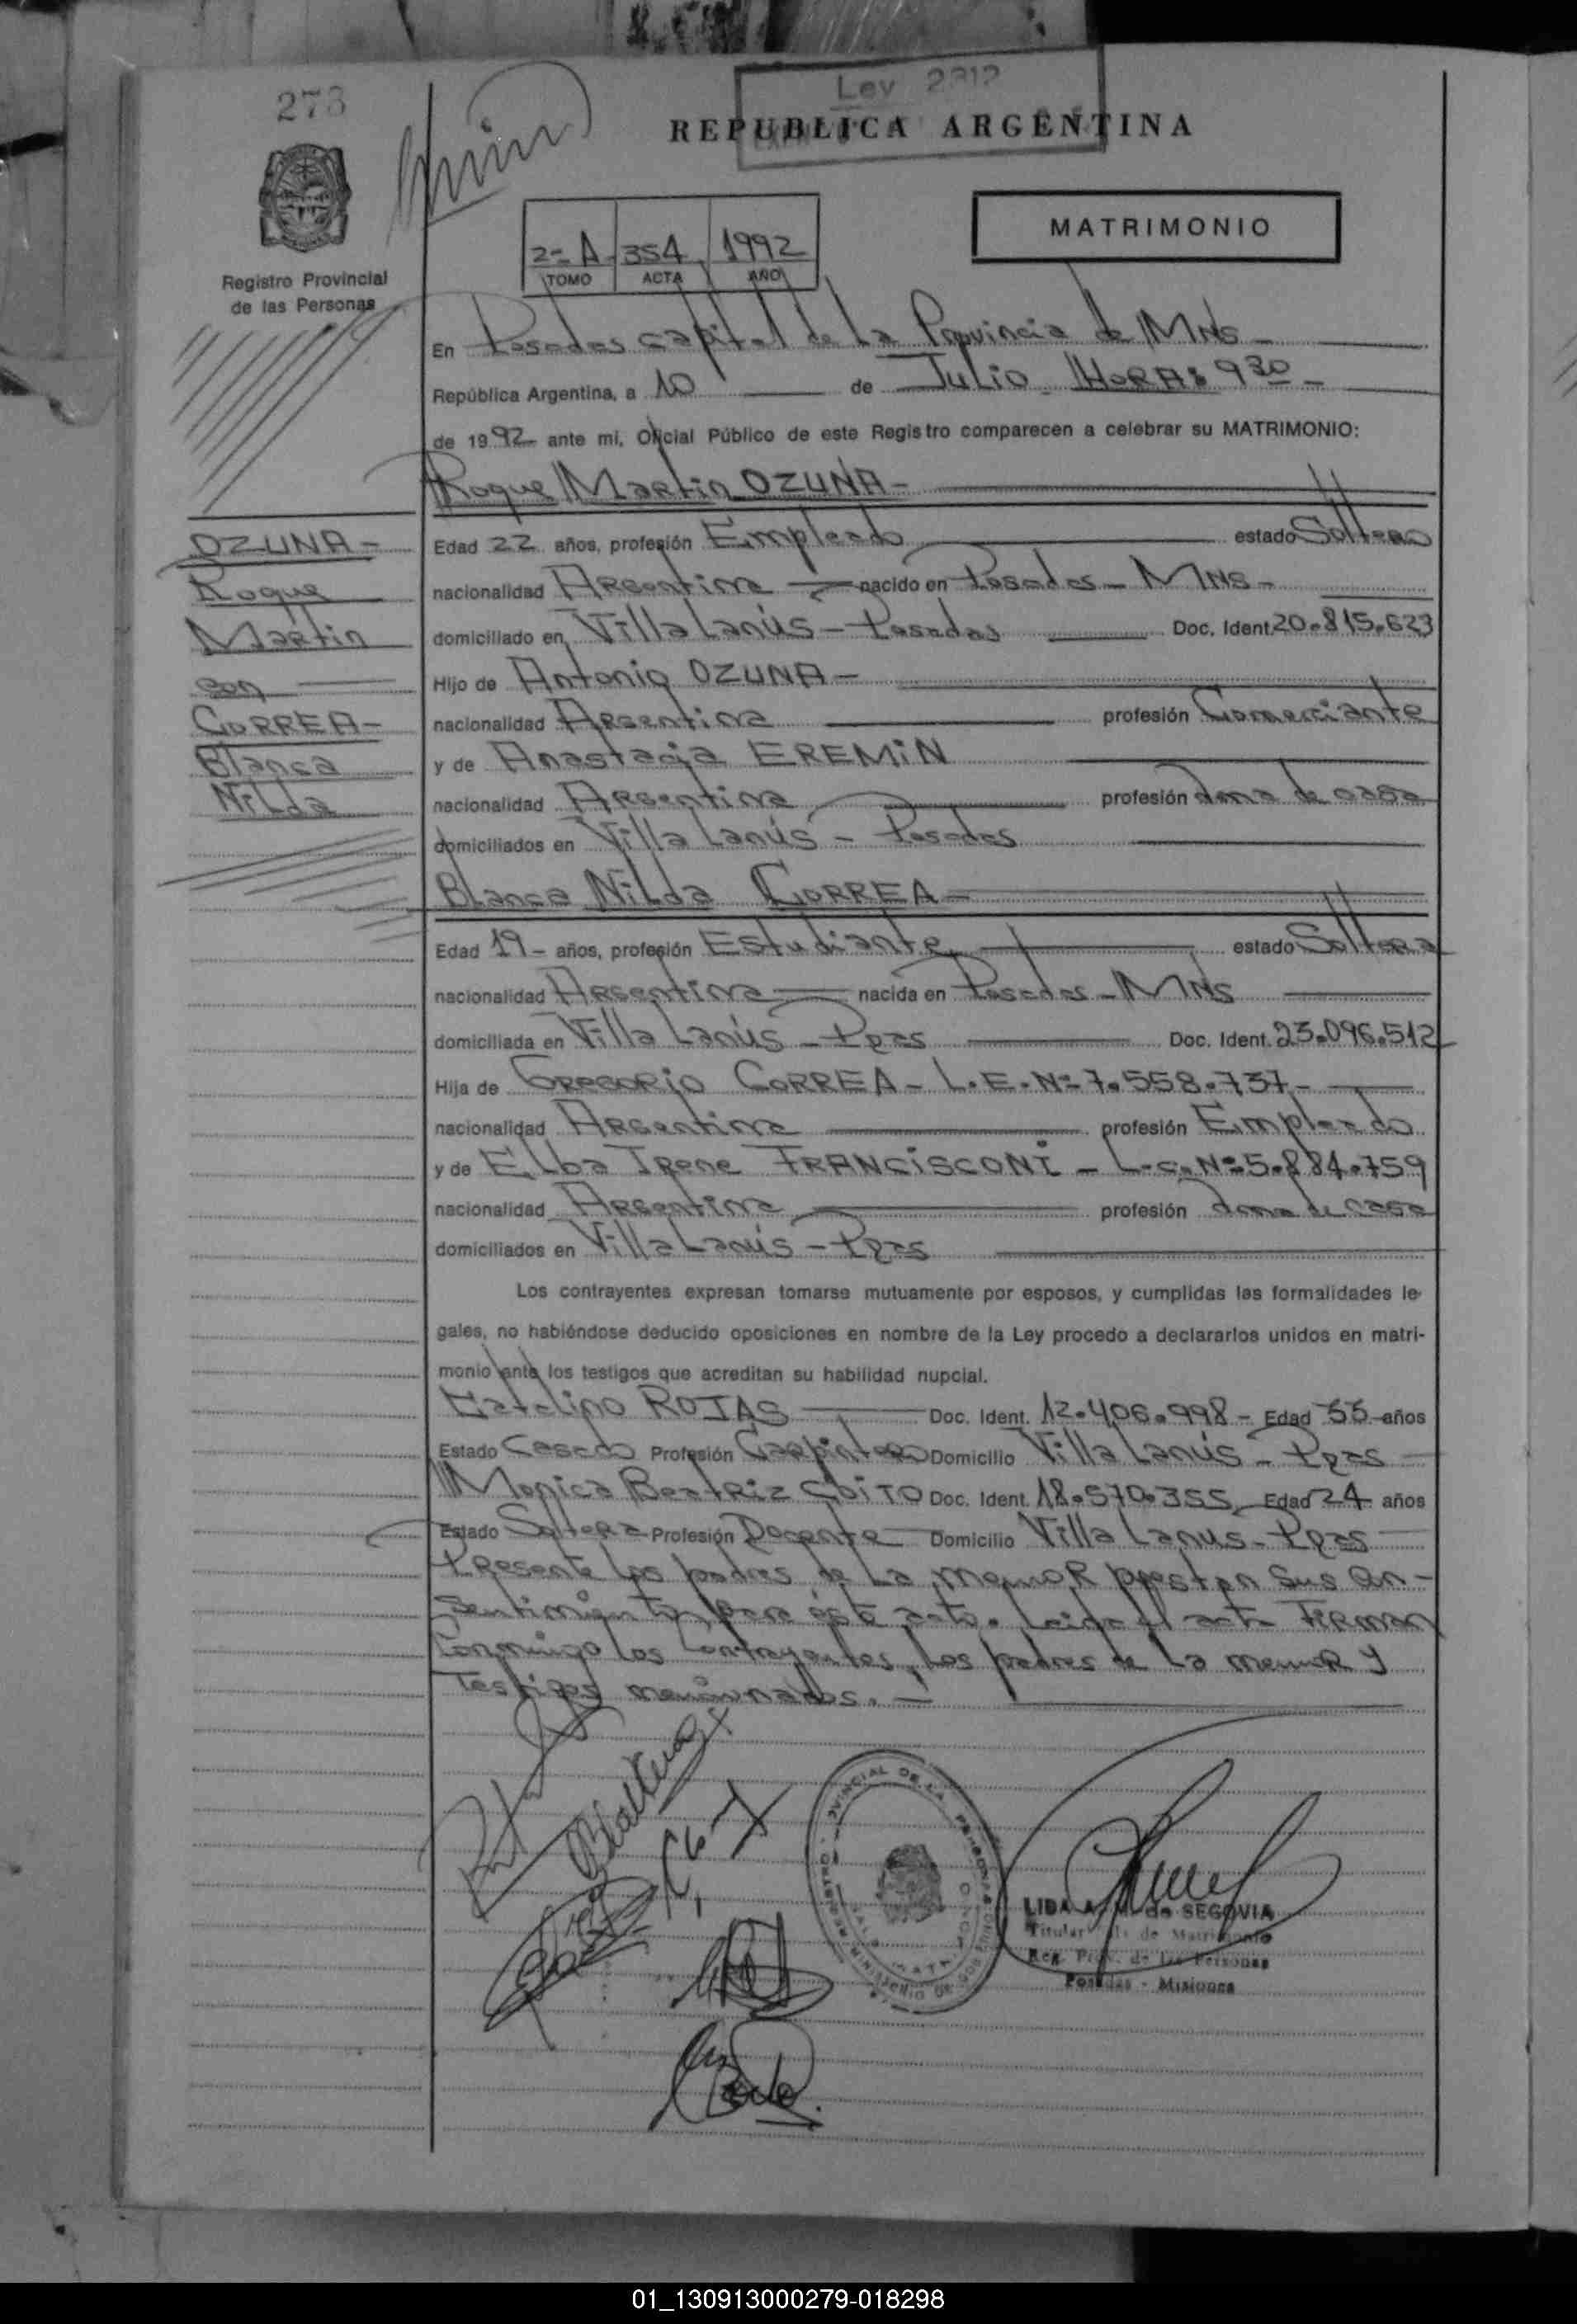 273
Ley 2312
REPUBLICA ARGENTINA
MATRIMONIO
2-A 354 1992
TOMO ACTA AÑO
Registro Provincial
de las Personas
En Posadas capital de la Provincia de Mns -
República Argentina, a 10 de Julio HORA: 9 30 -
de 1992 ante mi, Oficial Público de este Registro comparecen a celebrar su MATRIMONIO:
Roque Martin OZUNA -
OZUNA -
Roque
Martin
con
CORREA -
Blanca
Nilda
Edad 22 años, profesión Empleado estado Soltero
nacionalidad Argentina nacido en Posadas - Mns -
domiciliado en Villa Lanús - Posadas Doc. Ident. 20.815.623
Hijo de Antonio OZUNA -
nacionalidad Argentina profesión Comerciante
y de Anastacia EREMIN
nacionalidad Argentina profesión ama de casa
domiciliados en Villa Lanús - Posadas
Blanca Nilda CORREA -
Edad 19 - años, profesión Estudiante estado Soltera
nacionalidad Argentina nacida en Posadas - Mns
domiciliada en Villa Lanús - Pdas Doc. Ident. 23.096.512
Hija de Gregorio CORREA - L.E. Nº 7.558.737 -
nacionalidad Argentina profesión Empleado
y de Elba Irene FRANCISCONI - L.C. Nº 5.884.759
nacionalidad Argentina profesión ama de casa
domiciliados en Villa Lanús - Pdas
Los contrayentes expresan tomarse mutuamente por esposos, y cumplidas las formalidades le-
gales, no habiéndose deducido oposiciones en nombre de la Ley procedo a declararlos unidos en matri-
monio ante los testigos que acreditan su habilidad nupcial.
Catalino ROJAS Doc. Ident. 12.406.998 - Edad 35 años
Estado Casado Profesión Carpintero Domicilio Villa Lanús - Pdas
Monica Beatriz Doc. Ident. 18.570.355 Edad 24 años
Estado Soltera Profesión Docente Domicilio Villa Lanus - Pdas
Presente los padres de la menor prestan sus con-
sentimientos para éste acto. Leída el acta firman
conmigo los contrayentes, los padres de la menor y
Testigos mencionados. -
LIDA A. M. de SEGOVIA
Titular de Matrimonio
Reg. Prov. de las Personas
Posadas - Misiones
01_130913000279-018298